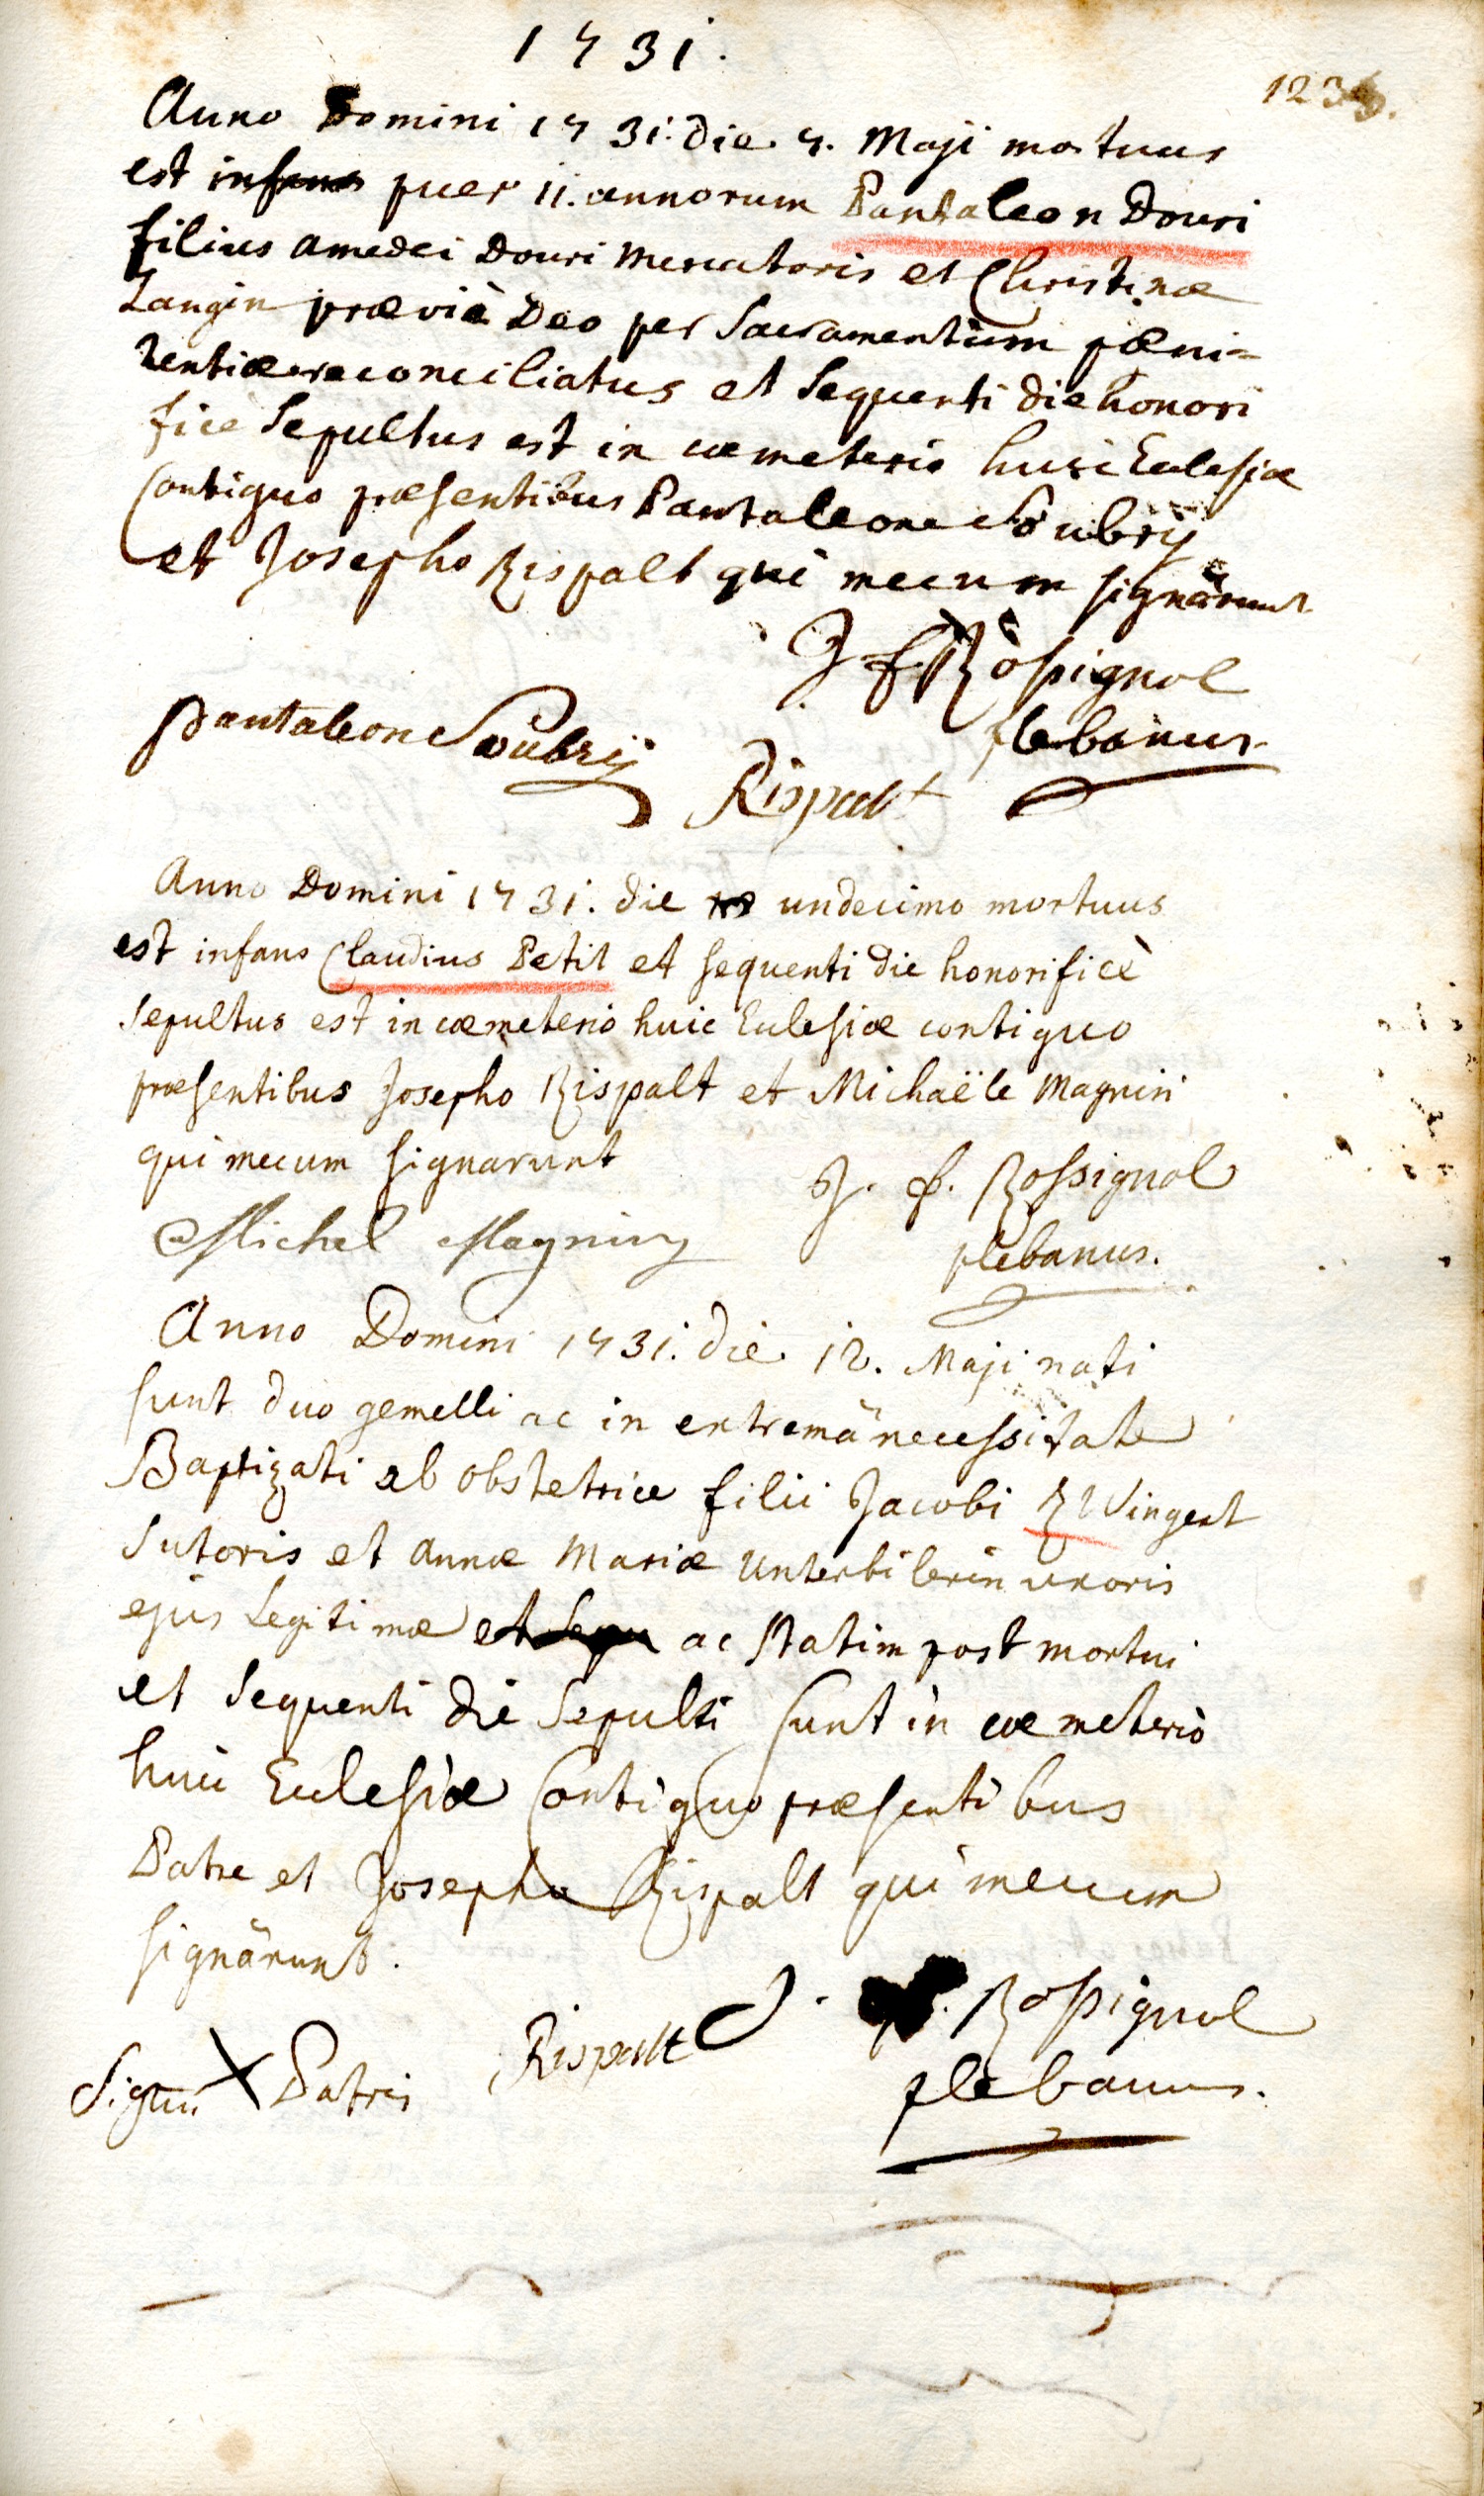 1731.
Anno Domini 1731. die 7. Maji mortuus
est infans puer 11. annorum Pantaleon Douri
filius Amedei Douri Mercatoris et Christinæ
Langin præviè Deo per Sacramentum pœni=
tentiæ reconciliatus et Sequenti die honori
ficè Sepultus est in cœmeterio huic Eclesiæ
Contiguo præsentibus Pantaleone Soubrÿ
et Josepho Rispalt qui mecum signârunt
J. f. Rossignol
plebanus.
Pantaleon Soubrÿ
Rispalt
Anno Domini 1731. die undecimo mortuus
est infans Claudius Petit et sequenti die honorificè
Sepultus est in cœmeterio huic Eclesiæ contiguo
præsentibus Josepho Rispalt et Michaële Magnin
qui mecum signarunt
J. f. Rossignol
Michel Magnin
plebanus.
Anno Domini 1731. die 12. Maji nati
sunt duo gemelli ac in extremâ necessitate
Baptizati ab obstetrice filii Jacobi ZWingert
Sutoris et Annæ Mariæ Unterbilerin uxoris
ejus Legitimæ et Sequ ac statim post mortui
et Sequenti die Sepulti sunt in cœmeterio
huic Eclesiæ Contiguo præsentibus
Patre et Josepho Rispalt qui mecum
signârunt.
J. Rossignol
Rispalt
Signũ X Patris
plebanus.